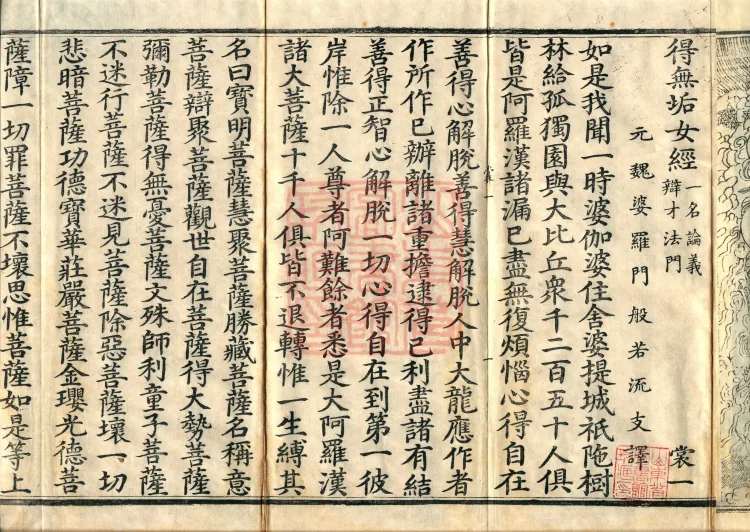 得無垢女經 一名論義辯才法門 裳一
元魏婆羅門般若流支譯
如是我聞一時婆伽婆住舍婆提城祇陁樹
林給孤獨園與大比丘衆千二百五十人俱
皆是阿羅漢諸漏已盡無復煩惱心得自在
善得心解脫善得慧解脫人中大龍應作者
作所作已辦離諸重擔逮得己利盡諸有結
善得正智心解脫一切心得自在到第一彼
岸惟除一人尊者阿難餘者悉是大阿羅漢
諸大菩薩十千人俱皆不退轉惟一生縛其
名曰寶明菩薩慧聚菩薩勝藏菩薩名稱意
菩薩辯聚菩薩觀世自在菩薩得大勢菩薩
彌勒菩薩得無憂菩薩文殊師利童子菩薩
不迷行菩薩不迷見菩薩除惡菩薩壞一切
悲暗菩薩功德寶華莊嚴菩薩金瓔光德菩
薩障一切罪菩薩不壞思惟菩薩如是等上